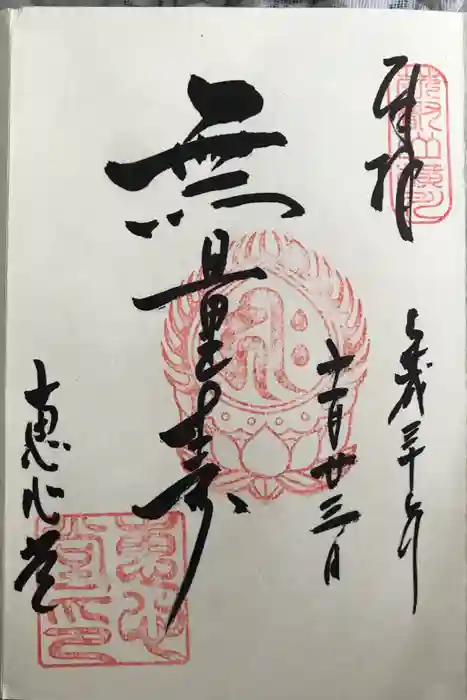 奉拝
平成三十年
十一月廿三日
無量寿
恵心堂
恵心
堂印